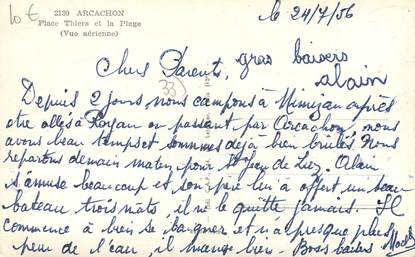 10 €
2130 ARCACHON
Place Thiers et la Plage
(Vue aérienne)
le 24/7/56
gros baisers
alain
Chers Parents,
33
Depuis 2 jours nous campons à Mimizan après
être allés à Royan en passant par Arcachon, nous
avons beau temps et sommes déjà bien brulés. Nous
repartons demain matin pour St Jean de Luz. Alain
s'amuse beaucoup et son père lui a offert un beau
bateau trois mâts, il ne le quitte jamais. Il
commence à bien se baigner et n'a presque plus
peur de l'eau, il mange bien. Bons baisers